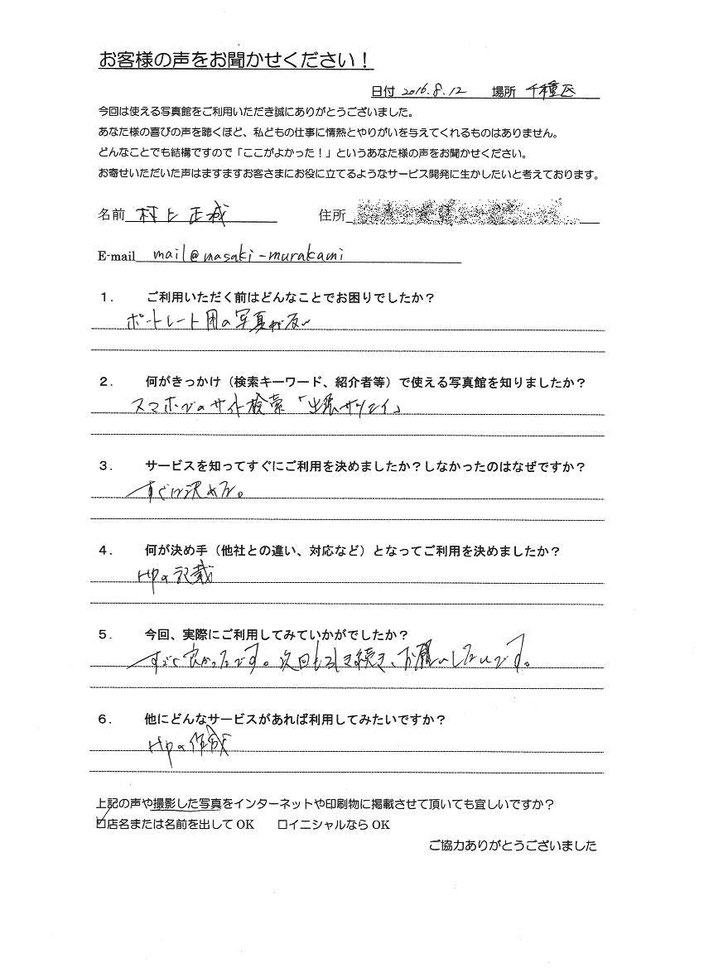 お客様の声をお聞かせください！
日付 2016.8.12 場所 千種区
今回は使える写真館をご利用いただき誠にありがとうございました。
あなた様の喜びの声を聴くほど、私どもの仕事に情熱とやりがいを与えてくれるものはありません。
どんなことでも結構ですので「ここがよかった！」というあなた様の声をお聞かせください。
お寄せいただいた声はますますお客さまにお役に立てるようなサービス開発に生かしたいと考えております。
名前 村上正 住所
E-mail mail@masaki-murakami
１． ご利用いただく前はどんなことでお困りでしたか？
ポートレート用の写真が
２． 何がきっかけ（検索キーワード、紹介者等）で使える写真館を知りましたか？
スマホでのサイト検索「出張
３． サービスを知ってすぐにご利用を決めましたか？しなかったのはなぜですか？
すぐに決めた。
４． 何が決め手（他社との違い、対応など）となってご利用を決めましたか？
HPの記載
５． 今回、実際にご利用してみていかがでしたか？
すごく良かったです。次回も引き続き、お願いしたいです。
６． 他にどんなサービスがあれば利用してみたいですか？
HPの作成
上記の声や撮影した写真をインターネットや印刷物に掲載させて頂いても宜しいですか？
☑店名または名前を出してOK □イニシャルならOK
ご協力ありがとうございました